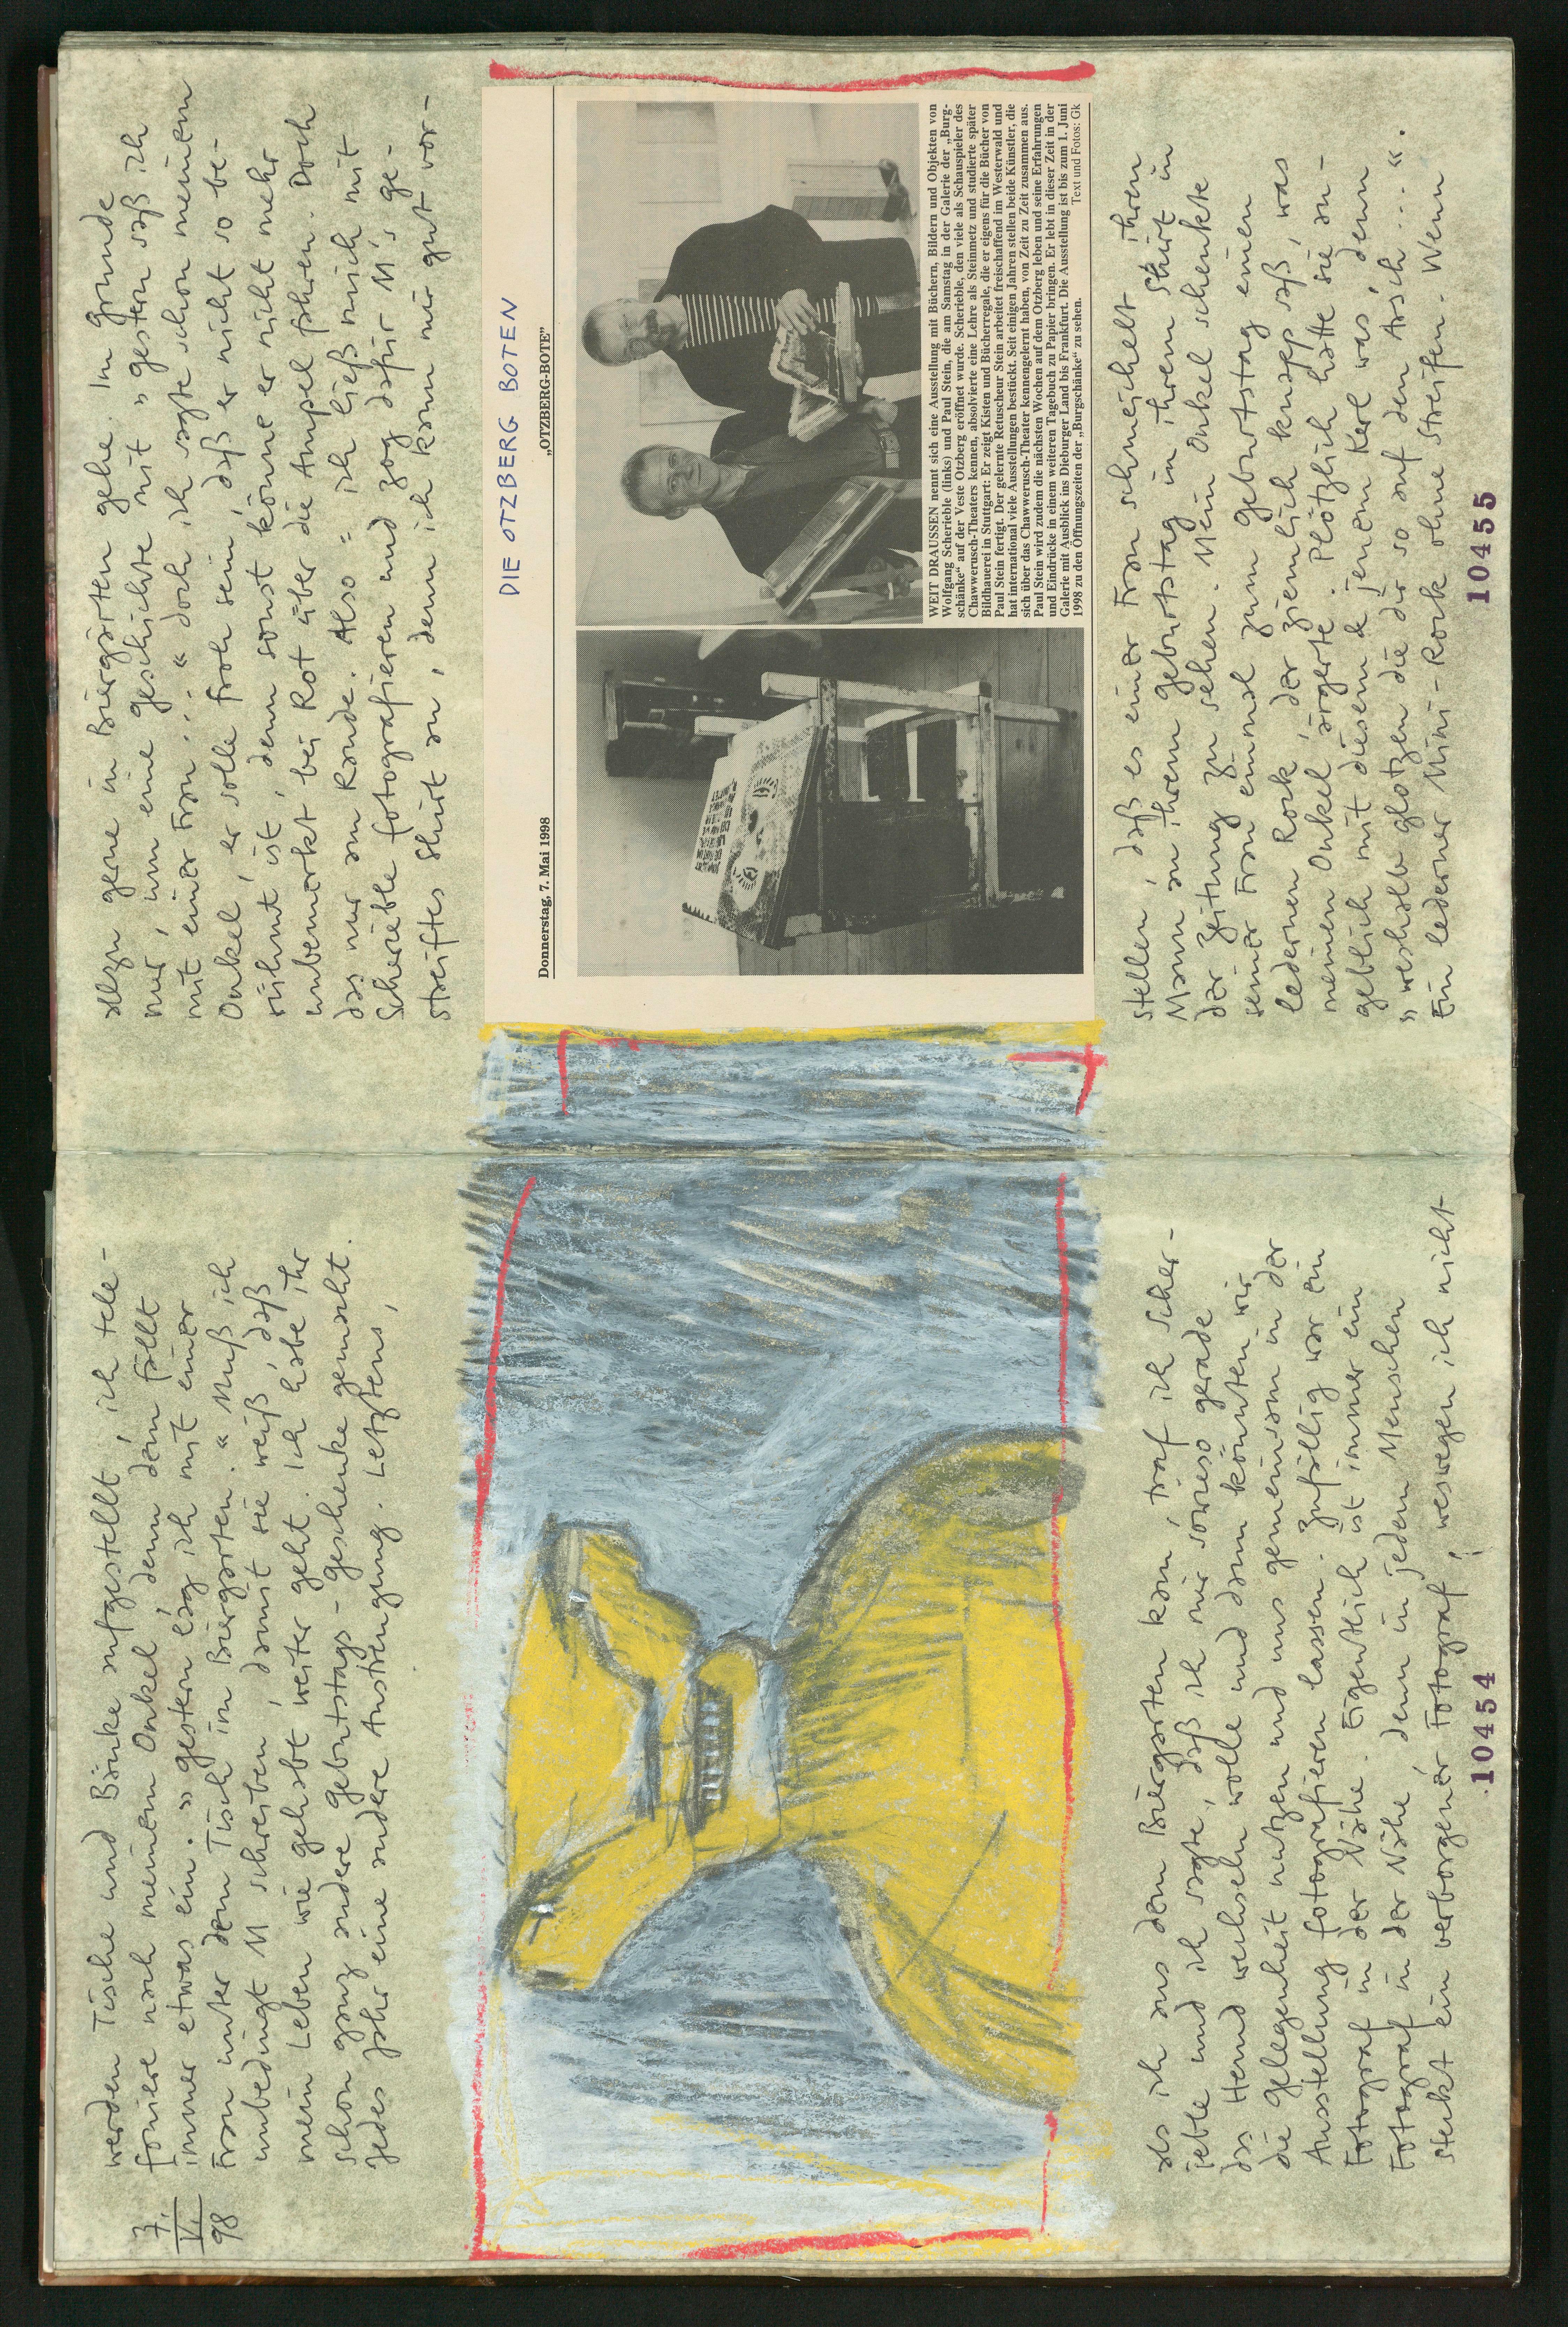 7.
V.
98
werden Tische und Bänke aufgestellt, ich tele-
foniere nach meinem Onkel, denn dem fällt
immer etwas ein. » gestern lag ich mit einer
Frau unter dem Tisch im Biergarten. « Muß ich
unbedingt M schreiben, damit sie weiß, daß
mein Leben wie gehabt weiter geht. Ich habe ihr
schon ganz andere geburtstags-geschenke gemacht.
Jedes Jahr eine andere Anstrengung. Letztens,
als ich aus dem Biergarten kam, traf ich Scher-
ieble und ich sagte, daß ich mir sowieso gerade
das Hemd wechseln wolle und dann könnten wir
die gelegenheit nutzen und uns gemeinsam in der
Ausstellung fotografieren lassen. Zufällig war ein
Fotograf in der Nähe. Eigentlich ist immer ein
Fotograf in der Nähe, denn in jedem Menschen
steckt ein verborgener Fotograf, weswegen ich nicht
10454
allzu gerne in Biergärten gehe. Im grunde
nur, um eine geschichte mit » gestern saß ich
mit einer Frau ... « doch ich sagte schon meinem
Onkel, er solle froh sein, daß er nicht so be-
rühmt ist, denn sonst könne er nicht mehr
unbemerkt bei Rot über die Ampel fahren. Doch
das nur am Rande. Also = ich ließ mich mit
Scherieble fotografieren und zog dafür M's ge-
streiftes Shirt an, denn ich kann mir gut vor-
DIE OTZBERG BOTEN
Donnerstag, 7. Mai 1998 „OTZBERG-BOTE“
WEIT DRAUSSEN nennt sich eine Ausstellung mit Büchern, Bildern und Objekten von
Wolfgang Scherieble (links) und Paul Stein, die am Samstag in der Galerie der „Burg-
schänke“ auf der Veste Otzberg eröffnet wurde. Scherieble, den viele als Schauspieler des
Chawwerusch-Theaters kennen, absolvierte eine Lehre als Steinmetz und studierte später
Bildhauerei in Stuttgart: Er zeigt Kisten und Bücherregale, die er eigens für die Bücher von
Paul Stein fertigt. Der gelernte Retuscheur Stein arbeitet freischaffend im Westerwald und
hat international viele Ausstellungen bestückt. Seit einigen Jahren stellen beide Künstler, die
sich über das Chawwerusch-Theater kennengelernt haben, von Zeit zu Zeit zusammen aus.
Paul Stein wird zudem die nächsten Wochen auf dem Otzberg leben und seine Erfahrungen
und Eindrücke in einem weiteren Tagebuch zu Papier bringen. Er lebt in dieser Zeit in der
Galerie mit Ausblick ins Dieburger Land bis Frankfurt. Die Ausstellung ist bis zum 1. Juni
1998 zu den Öffnungszeiten der „Burgschänke“ zu sehen. Text und Fotos: Gk
stellen, daß es einer Frau schmeichelt ihren
Mann an ihrem geburtstag in ihrem Shirt in
der Zeitung zu sehen. Mein Onkel schenkte
seiner Frau einmal zum geburtstag einen
ledernen Rock, der ziemlich knapp saß, was
meinen Onkel ärgerte. Plötzlich hatte sie an-
geblich mit diesem & jenem Kerl was, denn
» weshalb glotzen die dir so auf den Arsch ... «.
Ein lederner Mini-Rock ohne Streifen. Wenn
10455